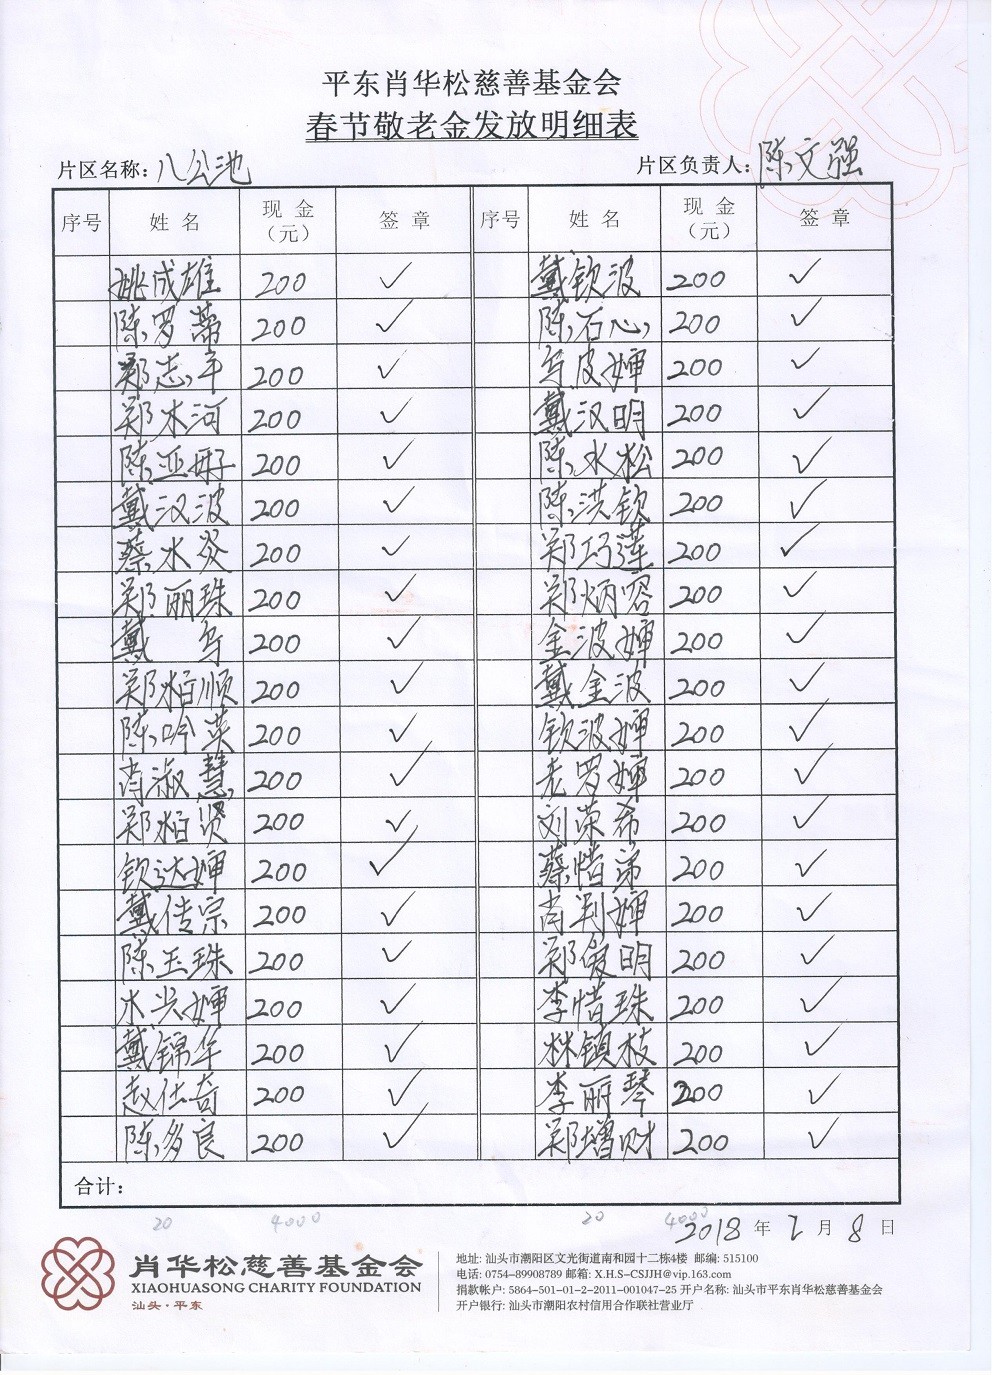 平东肖华松慈善基金会
春节敬老金发放明细表
片区名称：八公池 片区负责人：陈文强
序号 姓名 现金（元） 签章 序号 姓名 现金（元） 签章
姚成雄 200 ✓ 戴钦波 200 ✓
陈罗蒂 200 ✓ 陈石心 200 ✓
郑志平 200 ✓ 乌皮婶 200 ✓
郑木河 200 ✓ 戴汉明 200 ✓
陈亚 200 ✓ 陈水松 200 ✓
戴汉波 200 ✓ 陈洪钦 200 ✓
蔡水发 200 ✓ 郑巧莲 200 ✓
郑丽珠 200 ✓ 郑炳容 200 ✓
戴乌 200 ✓ 金波婶 200 ✓
郑柏顺 200 ✓ 戴金波 200 ✓
陈吟英 200 ✓ 钦波婶 200 ✓
肖淑慧 200 ✓ 老罗婶 200 ✓
郑柏贤 200 ✓ 刘荣希 200 ✓
钦达婶 200 ✓ 蔡惜弟 200 ✓
戴传宗 200 ✓ 肖判婶 200 ✓
陈玉珠 200 ✓ 郑俊明 200 ✓
木兴婶 200 ✓ 李惜珠 200 ✓
戴锦华 200 ✓ 林镇枝 200 ✓
赵仕奇 200 ✓ 李丽琴 200 ✓
陈多良 200 ✓ 郑增财 200 ✓
合计：
20 4000 20 4000
2018 年 2 月 8 日
肖华松慈善基金会
XIAOHUASONG CHARITY FOUNDATION
汕头·平东
地址: 汕头市潮阳区文光街道南和园十二栋4楼 邮编: 515100
电话: 0754-89908789 邮箱: X.H.S-CSJJH@vip.163.com
捐款帐户: 5864-501-01-2-2011-001047-25 开户名称: 汕头市平东肖华松慈善基金会
开户银行: 汕头市潮阳农村信用合作联社营业厅